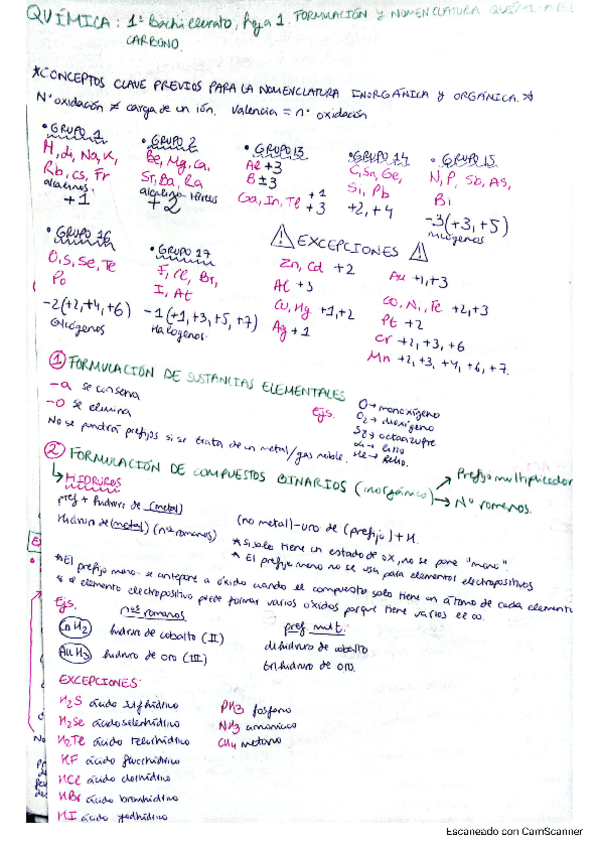 QUÍMICA: 1º Bachillerato, hoja 1. FORMULACIÓN y NOMENCLATURA QUÍMICA
CARBONO.
*CONCEPTOS CLAVE PREVIOS PARA LA NOMENCLATURA INORGÁNICA y ORGÁNICA.*
Nº oxidación ≠ carga de un ión. Valencia = nº oxidación
• GRUPO 1
H, Li, Na, K,
Rb, Cs, Fr
alcalinos.
+1
• GRUPO 2
Be, Mg, Ca,
Sr, Ba, Ra
alcalino-térreos
+2
• GRUPO 13
Al +3
B ±3
Ga, In, Tl +1
+3
• GRUPO 14
C, Sn, Ge,
Si, Pb
+2, +4
• GRUPO 15
N, P, Sb, As,
Bi
-3(+3, +5)
nitrógenos
• GRUPO 16
O, S, Se, Te
Po
-2(+2, +4, +6)
• GRUPO 17
F, Cl, Br,
I, At
-1(+1, +3, +5, +7)
Halógenos
⚠ EXCEPCIONES ⚠
Zn, Cd +2
Al +3
Cu, Hg +1, +2
Ag +1
Au +1, +3
Co, Ni, Fe +2, +3
Pt +2
Cr +2, +3, +6
Mn +2, +3, +4, +6, +7.
① FORMULACIÓN DE SUSTANCIAS ELEMENTALES
-a se conserva
-o se elimina
No se pondrá prefijos si se trata de un metal/gas noble.
Ejs.
O → monoxígeno
O2 → dioxígeno
S8 → octaazufre
Li → Litio
He → Helio.
② FORMULACIÓN DE COMPUESTOS BINARIOS (inorgánico)
→ Prefijo multiplicador
→ Nº romanos.
↳ HIDRUROS
pref + hidruro de (metal)
Hidruro de (metal) (nºs romanos)
(no metal)-uro de (prefijo) + H.
* Si solo tiene un estado de ox, no se pone "mono"
* El prefijo mono no se usa para elementos electropositivos
* El prefijo mono- se antepone a óxido cuando el compuesto solo tiene un átomo de cada elemento
elemento electropositivo puede formar varios óxidos porque tiene varios
Ejs.
nºs romanos
hidruro de cobalto (II)
AuH3 hidruro de oro (III)
pref mult.
dihidruro de cobalto
trihidruro de oro.
EXCEPCIONES:
H2S ácido sulfhídrico
H2Se ácido selenhídrico
H2Te ácido telurhídrico
HF ácido fluorhídrico
HCl ácido clorhídrico
HBr ácido bromhídrico
HI ácido yodhídrico
PH3 fosfano
NH3 amoniaco
CH4 metano
Escaneado con CamScanner